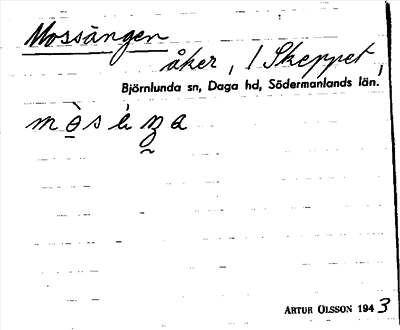 Mossängen
åker, 1 Skeppet,
Björnlunda sn, Daga hd, Södermanlands län.
ARTUR OLSSON 1943